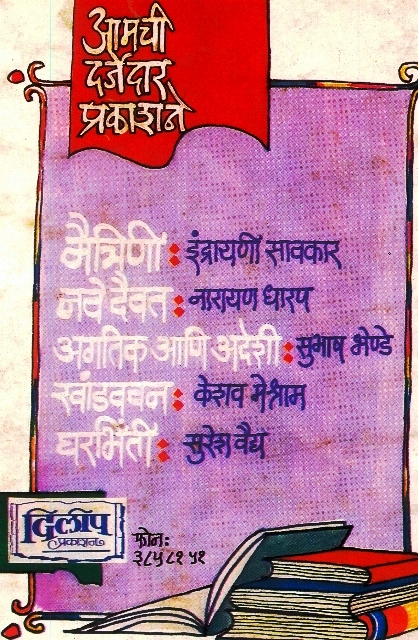 आमची
दर्जेदार
प्रकाशने
मैत्रिणी : इंद्रायणी सावकार
नवे दैवत : नारायण धारप
अगतिक आणि अदेशी : सुभाष भेण्डे
खांडववन : केशव मेश्राम
घरभिंती : सुरेश वैद्य
दिलीप
प्रकाशन
फोन:
३८५८१५१